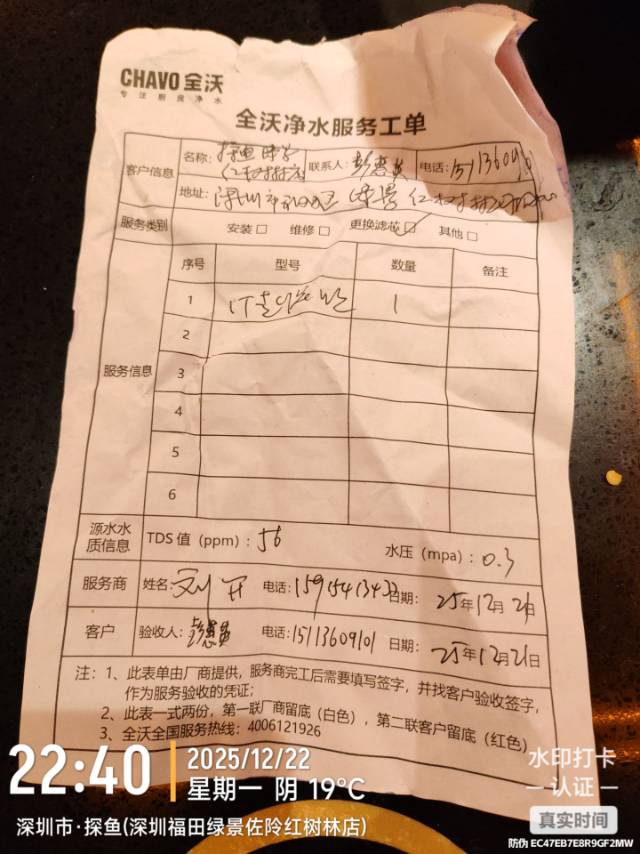 CHAVO 全沃
专注厨房净水
全沃净水服务工单
客户信息 名称: 探鱼 红树林店 联系人: 彭惠英 电话: 15113609101
地址: 深圳市 绿景 红树林
服务类别 安装□ 维修□ 更换滤芯☑ 其他□
服务信息 序号 型号 数量 备注
1 1
2
3
4
5
6
源水水质信息 TDS 值（ppm）: 56 水压（mpa）: 0.3
服务商 姓名: 刘 电话: 日期: 25年12月21日
客户 验收人: 彭惠英 电话: 15113609101 日期: 25年12月21日
注：1、此表单由厂商提供，服务商完工后需要填写签字，并找客户验收签字，
作为服务验收的凭证；
2、此表一式两份，第一联厂商留底（白色），第二联客户留底（红色）
3、全沃全国服务热线：4006121926
22:40 2025/12/22
星期一 阴 19°C
深圳市·探鱼(深圳福田绿景佐阾红树林店)
水印打卡
认证
真实时间
防伪 EC47EB7E8R9GF2MW